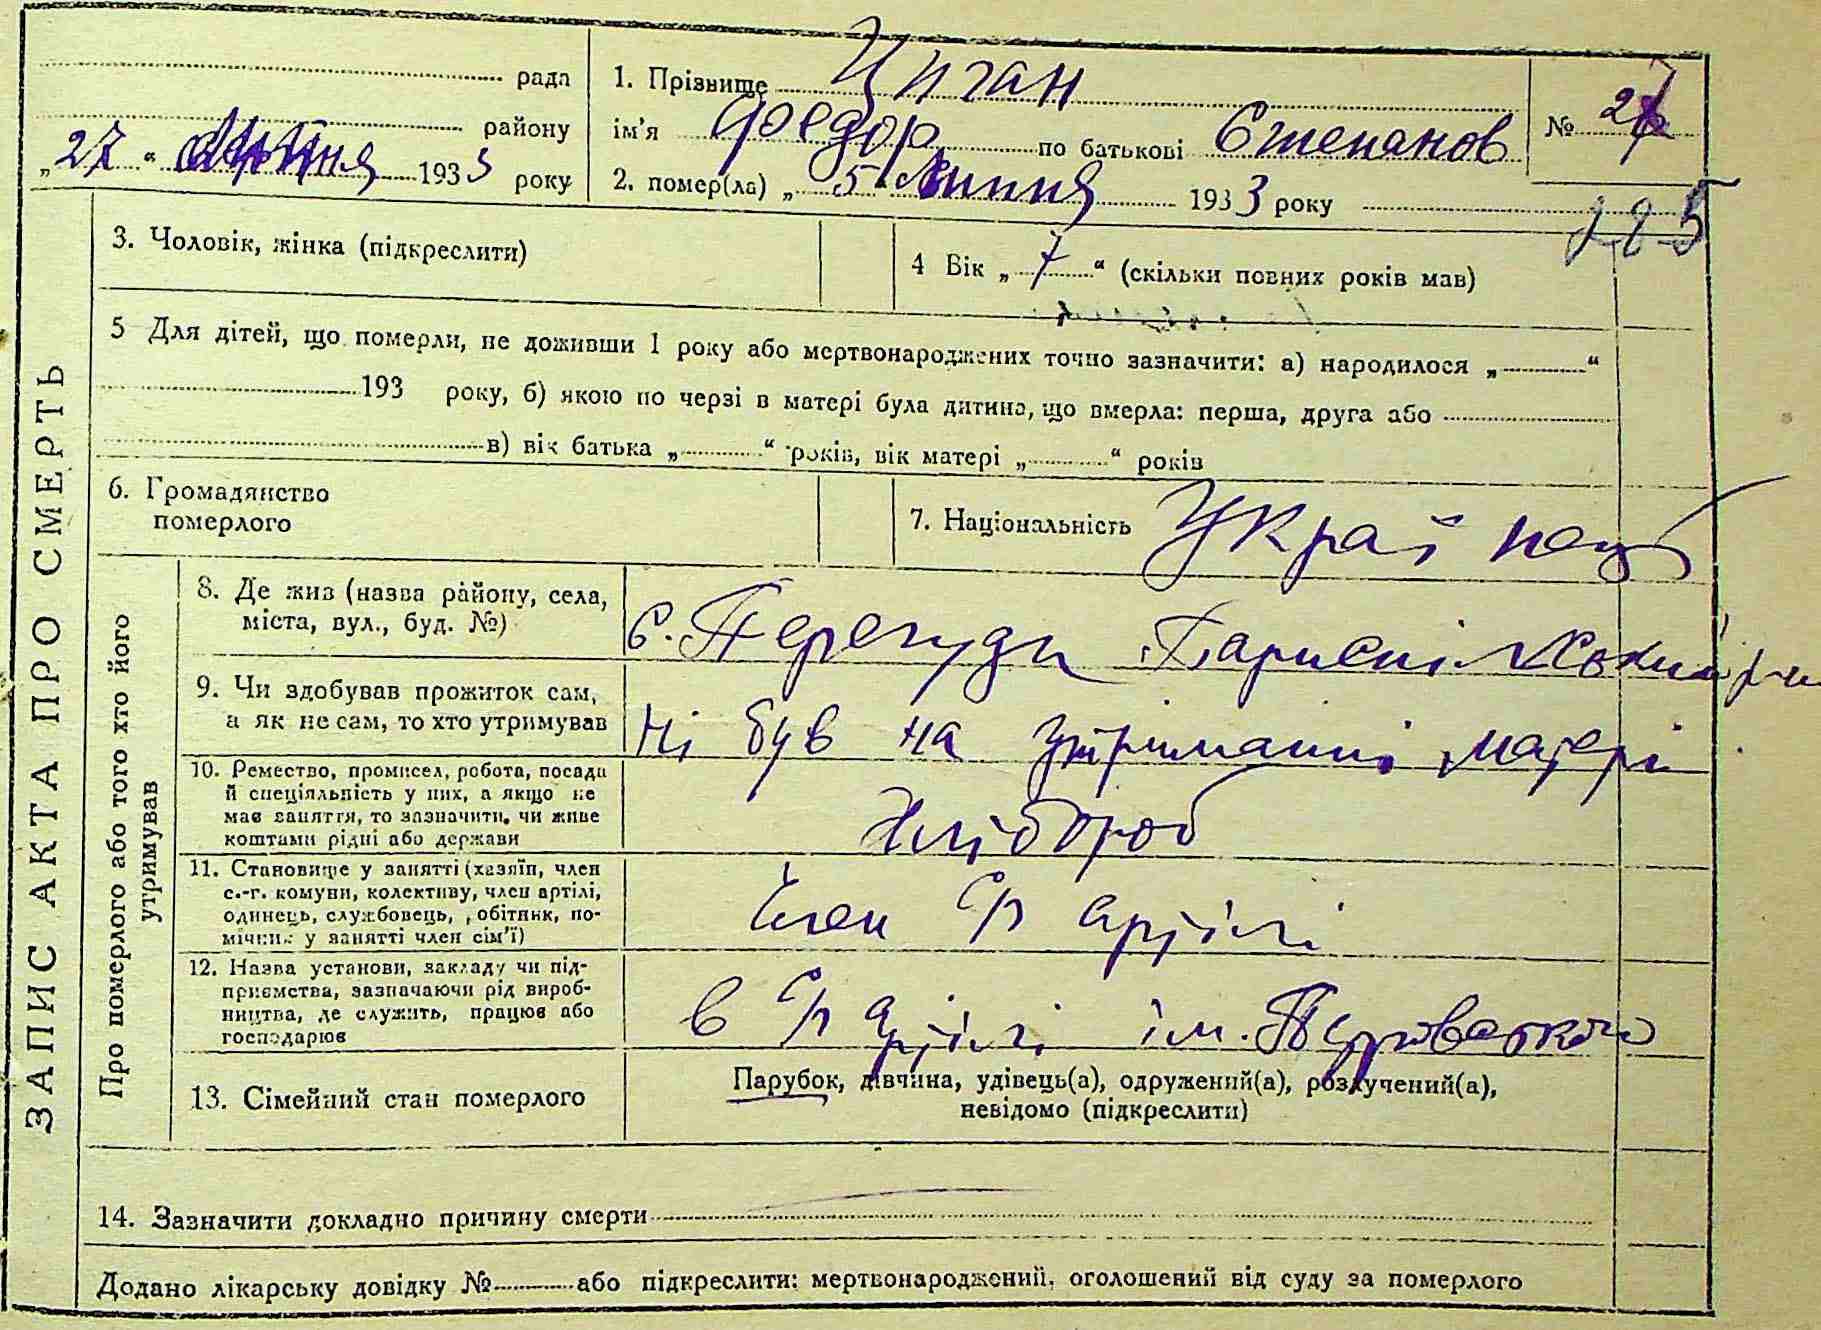 ЗАПИС АКТА ПРО СМЕРТЬ
рада
району
„27“ 1933 року
1. Прізвище Циган
ім'я Федор по батькові Степанов
2. помер(ла) „5“ Липня 1933 року
№
185
3. Чоловік, жінка (підкреслити)
4 Вік „7“ (скільки повних років мав)
5 Для дітей, що померли, не доживши 1 року або мертвонароджених точно зазначити: а) народилося „ “
193 року, б) якою по черзі в матері була дитина, що вмерла: перша, друга або
в) вік батька „ “ років, вік матері „ “ років
6. Громадянство
померлого
7. Національність Украйнець
Про померлого або того хто його
утримував
8. Де жив (назва району, села,
міста, вул., буд. №)
с. Перегуди
9. Чи здобував прожиток сам,
а як не сам, то хто утримував
Ні був на утриманні матері
10. Ремество, промисел, робота, посада
й спеціяльність у них, а якщо не
має заняття, то зазначити, чи живе
коштами рідні або держави
Хлібороб
11. Становище у занятті (хазяїн, член
с.-г. комуни, колективу, член артілі,
одинець, службовець, робітник, по-
мічник у занятті член сім'ї)
Член С/г артілі
12. Назва установи, закладу чи під-
приємства, зазначаючи рід вироб-
ництва, де служить, працює або
господарює
в С/г артілі ім.
13. Сімейний стан померлого
Парубок, дівчина, удівець(а), одружений(а), розлучений(а),
невідомо (підкреслити)
14. Зазначити докладно причину смерти
Додано лікарську довідку № або підкреслити: мертвонароджений, оголошений від суду за померлого